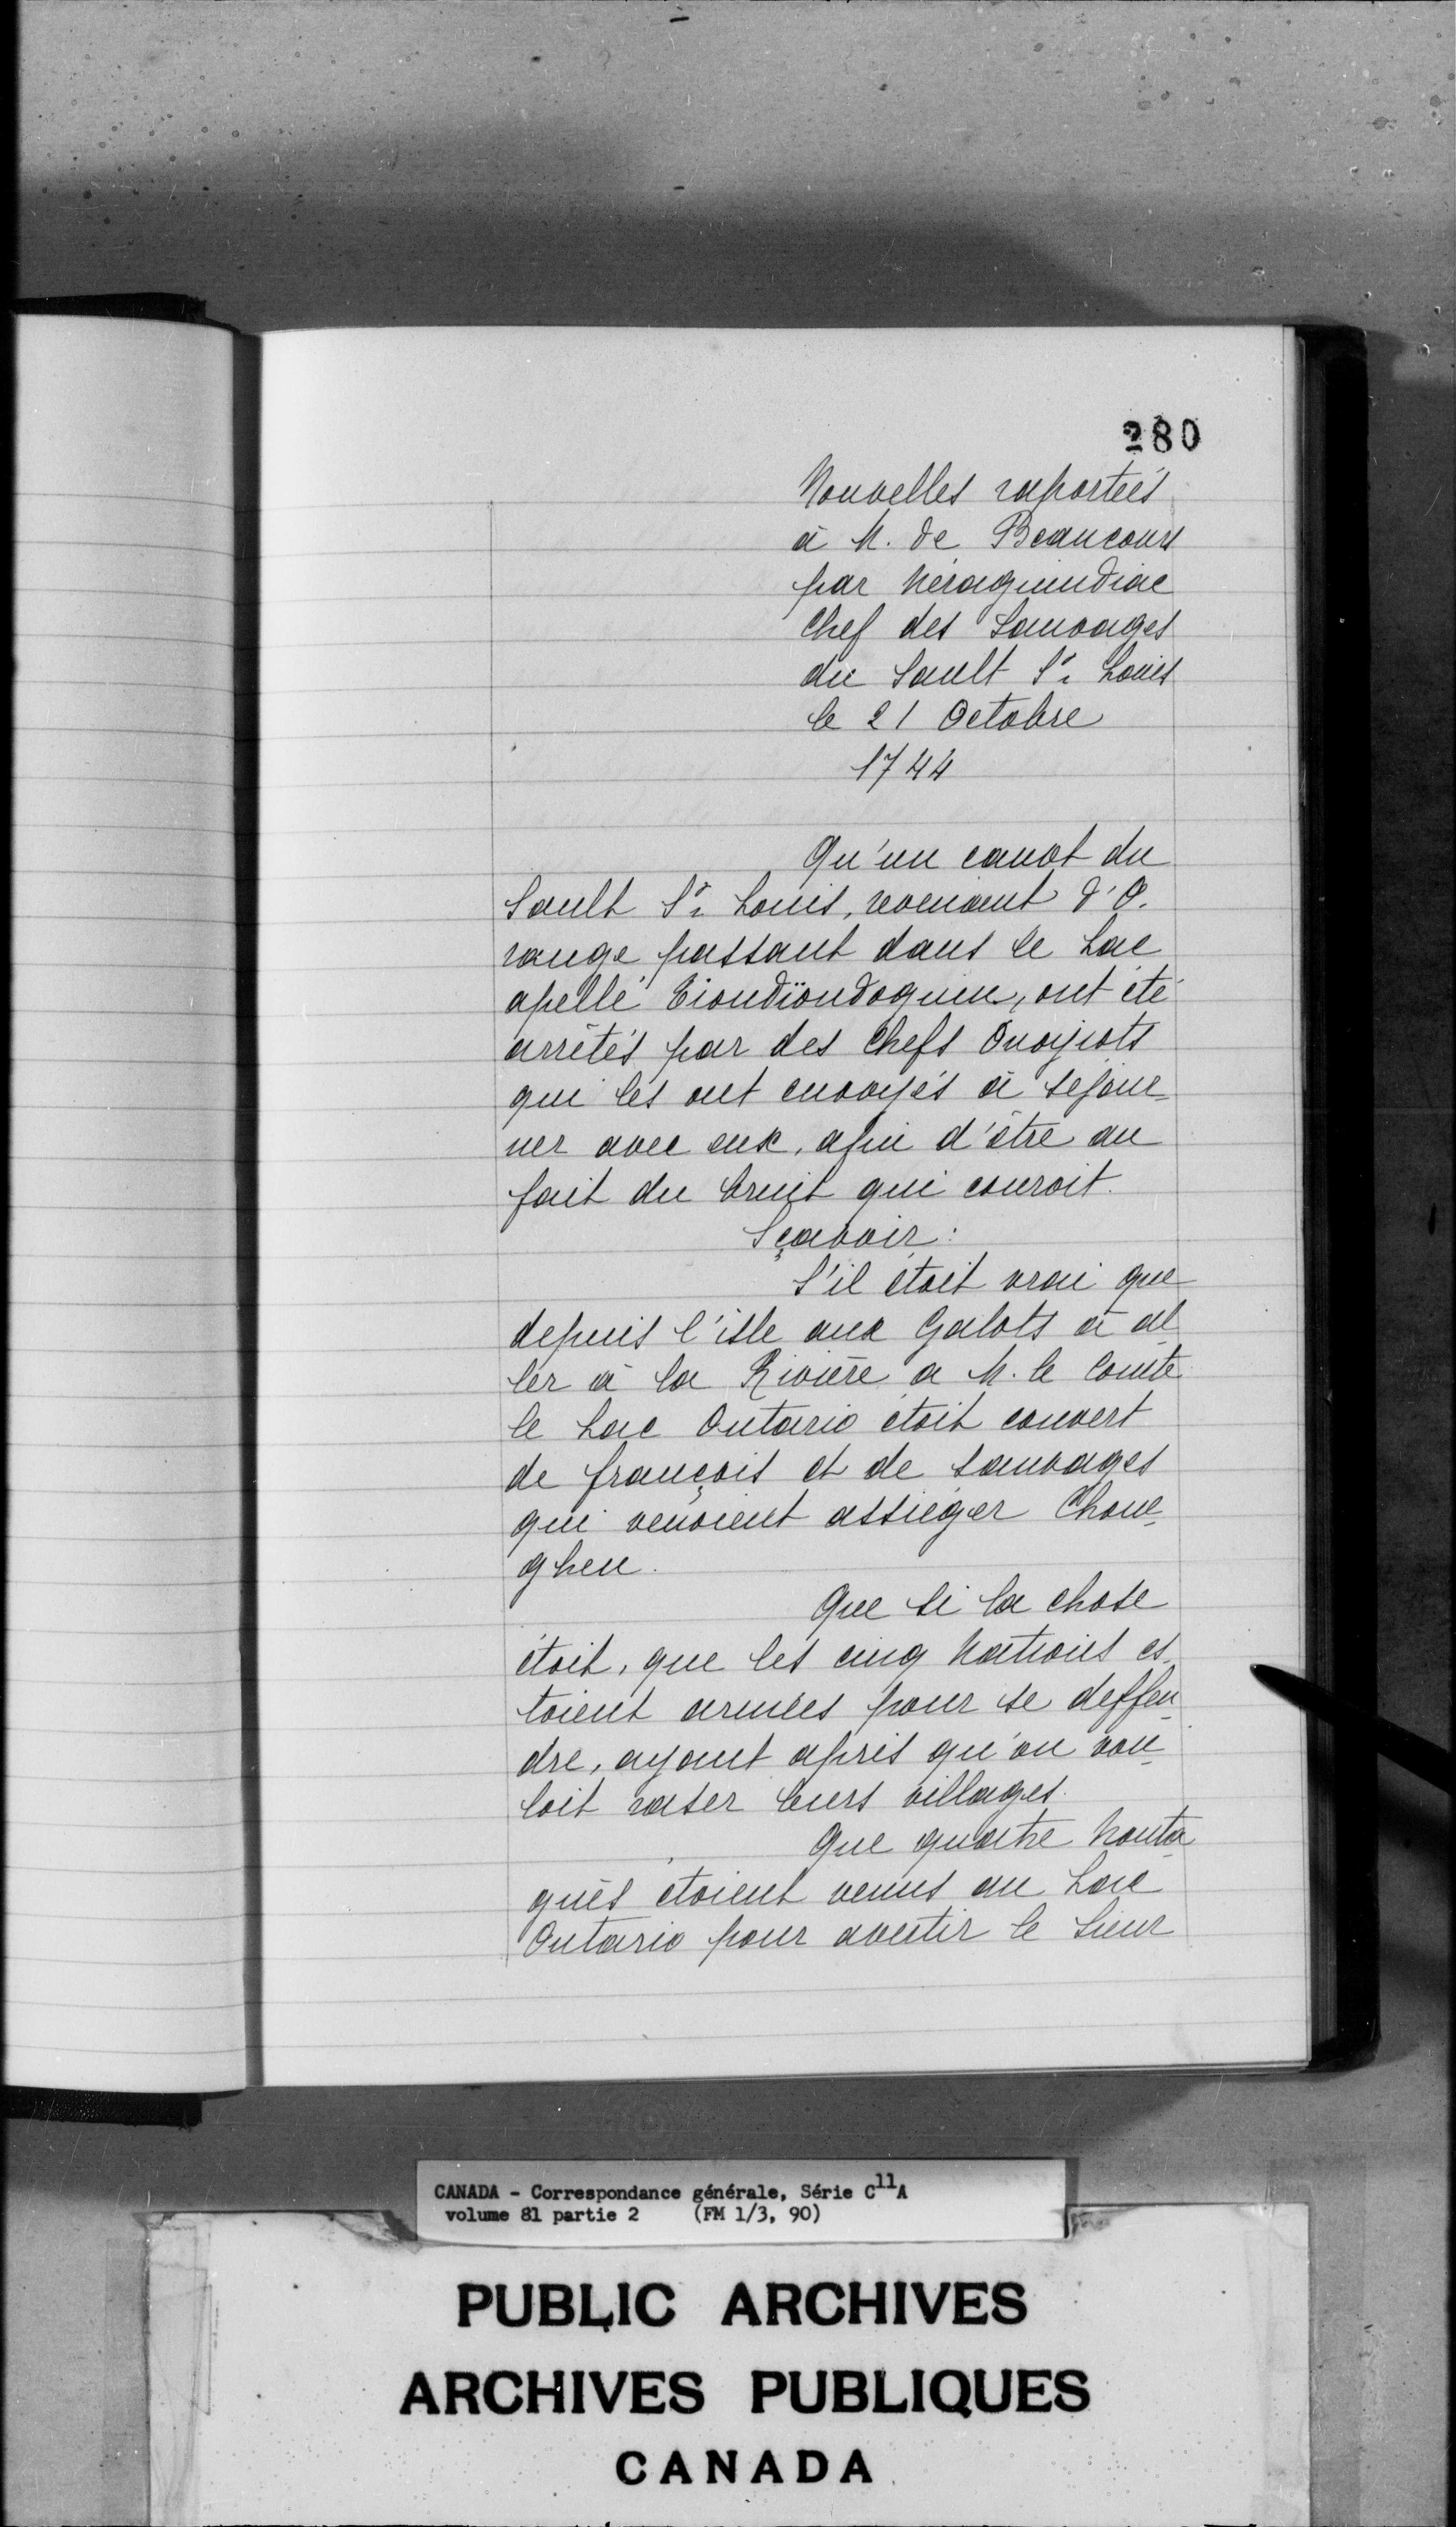 280
Nouvelles raportées
à M. de Beaucours
par Néraguindiac
Chef des Sauvages
du Sault St. Louis
le 21 Octobre
1744
Qu'un canot du
Sault St. Louis, revenant d'O.
range passant dans le Lac
apellé Eiondïondoguen, ont été
arrêtés par des Chefs Onoyiots
qui les ont envoyés à sejour-
ner avec eux, afin d'être au
fait du bruit qui couroit.
Sçavoir:
S'il étoit vrai que
depuis l'isle aux Galots à al
ler à la Rivière a M. le Comte
le Lac Ontario étoit couvert
de françois et de sauvages
qui venoient assiéger Choue-
ghen.
Que si la chose
étoit, que les cinq Nations es-
toient armées pour se deffen-
dre, ayant apris qu'on vou-
loit raser leurs villages.
Que quatre Nonta-
gués étoient venus au Lac
Ontario pour avertir le Sieur
CANADA - Correspondance générale, Série C11A
volume 81 partie 2 (FM 1/3, 90)
PUBLIC ARCHIVES
ARCHIVES PUBLIQUES
CANADA